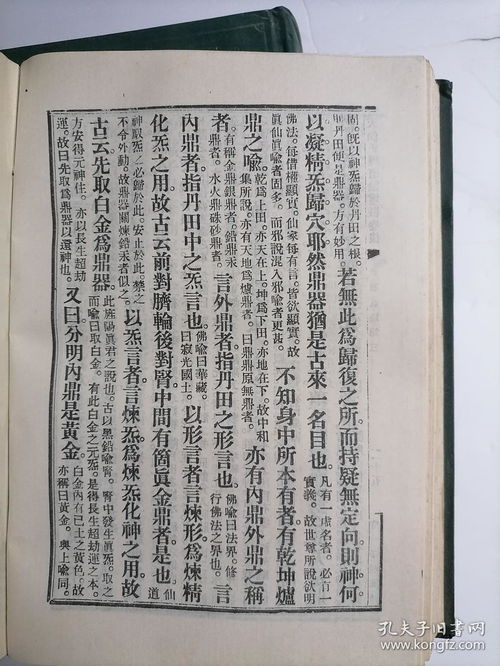 固。既以神炁歸於丹田之根。
則丹田便是鼎器。方有妙用
若無此爲歸復之所。而持疑無定向。則神何
以凝精炁歸穴耶。然鼎器猶是古來一名目也。
凡有一虛名者。必有一
實義。故世尊所說欲明
佛法。每借權顯實。仙家每有言。皆欲顯實。故
眞仙眞喻者固多。而邪說混入邪喻者更甚。
不知身中所本有者有乾坤爐
鼎之喻
乾爲上田。亦天在上。坤爲下田。亦地在下。故中和
集所說。亦有天地爲爐鼎者。曰鼎鼎原無鼎者。
亦有內鼎外鼎之稱
者。
有稱金鼎銀鼎者。鉛鼎汞
鼎者。水火鼎硃砂鼎者。
言外鼎者指丹田之形言也。
佛喻曰法界。修
行佛法之界也。
言
內鼎者指丹田中之炁言也。
佛喻曰華藏。
曰寂光國土。
以形言者言煉形爲煉精
化炁之用。故古云前對臍輪後對腎中間有箇眞金鼎者是也。
仙
道
神馭炁必歸於此。安止於此。禁之
不令外動。故鼎器關煉鉛汞者似之。
以炁言者言煉炁爲煉炁化神之用。故
古云先取白金爲鼎器
此旌陽眞君之說也。古以黑鉛喻腎。腎中發生眞炁。取之
而喻曰取白金。有此白金之元炁。是得長生超劫運之本。
方安得元神住。亦以長生超劫
運。故曰先取爲鼎器以還神也。
又曰分明內鼎是黃金
白金內有已土之黃色。故
亦稱曰黃金。與上喻同。
孔夫子旧书网
www.kongfz.com